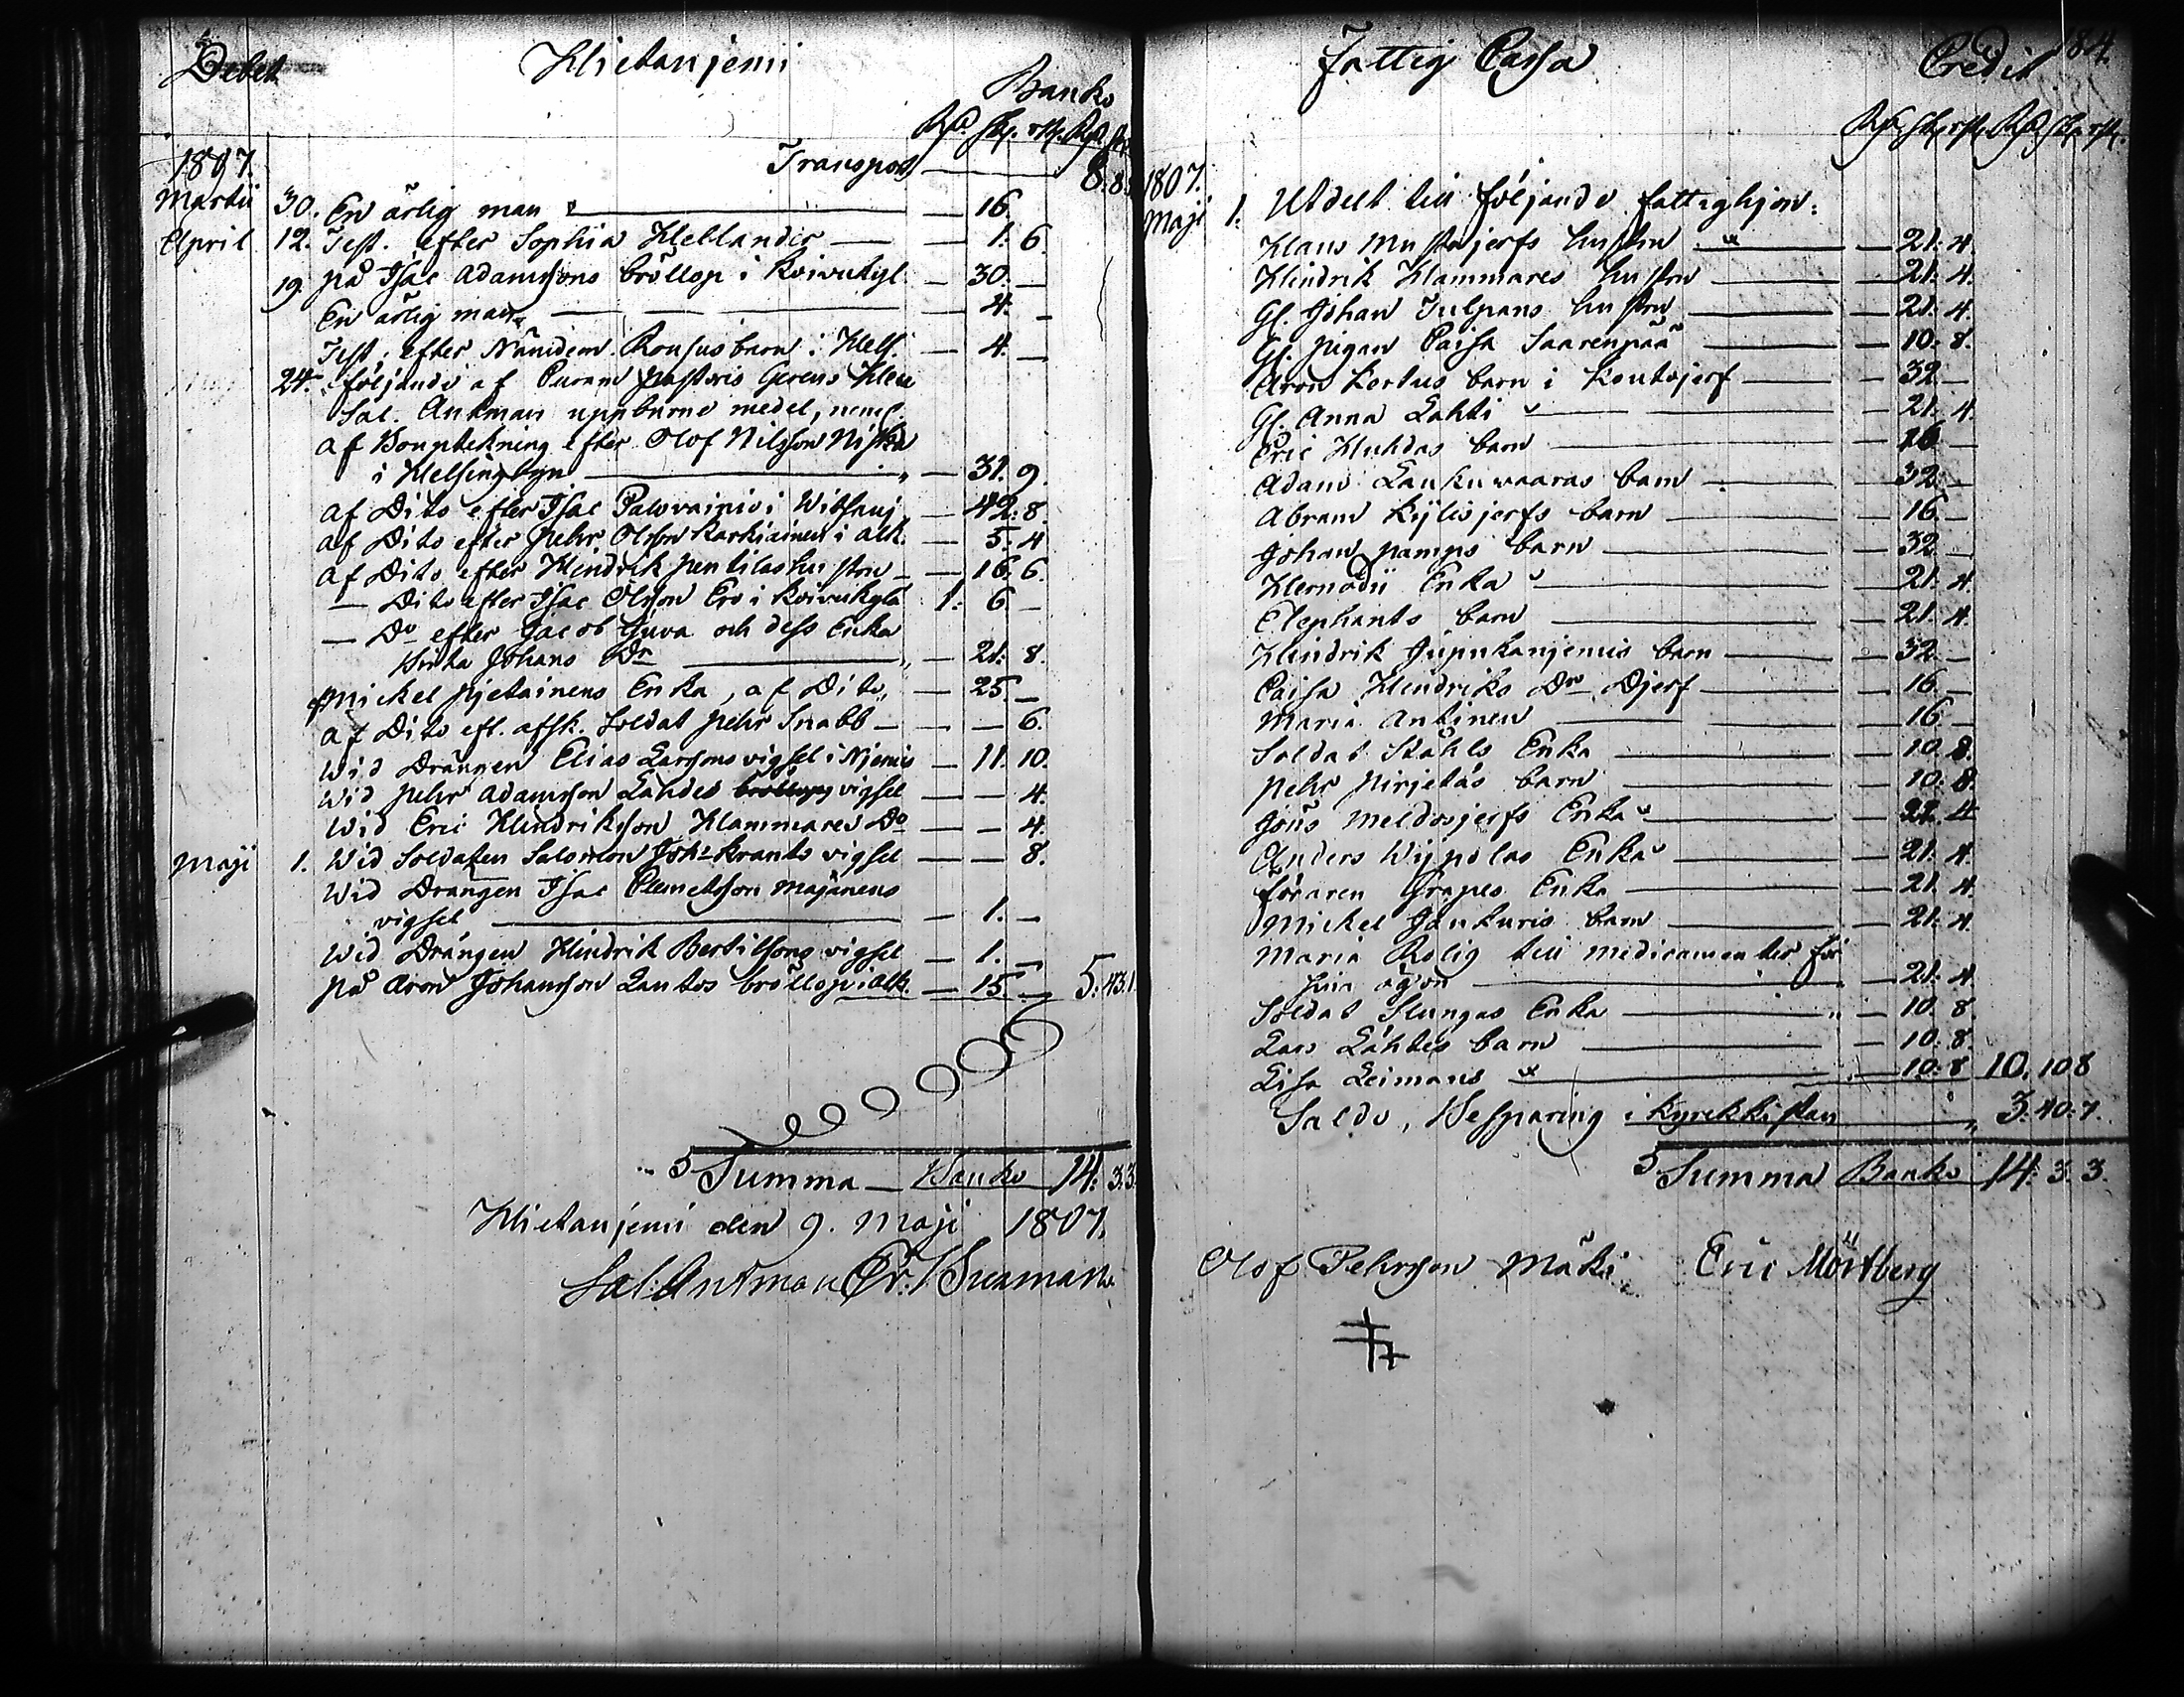 Debet Hietaniemi
Banko
Rd. sk. rst. Rd. sk.
1807. Transport — 8. 8.
Martii 30. En ärlig man — 16.
April 12. Test. efter Sophia Hellander — 1: 6.
19. på Isac Adamssons bröllop i Koivukyl. — 30. —
En ärlig man — 4. —
Test. efter Nämdem. Rousus barn i Hels. — 4. —
24. följande af
Sal. Antman uppburne medel, neml.
af Bouptekning efter Olof Nilsson Niska
i Helsingbyn — 31. 9.
af Dito efter Isac Palovainio i Witsanj. — 42: 8.
af Dito efter Pehr Olsson Karkiainen i Alk. — 5: 4
af Dito efter Hindrik Pentilas hustru — 16. 6.
— Dito efter Isac Olsson Ero i Koivukylä 1: 6 —
— Do efter Jacob Juva och dess Enka
Brita Johans Dr — 21: 8.
Mickel Pjetainens Enka, af Dito — 25 —
af Dito eft. afsk. Soldat Pehr Snabb — — 6.
Wid Drängen Elias Larssons vigsel i Njemis — 11. 10.
Wid Pehr Adamsson Lahdes bröllop vigsel — — 4.
Wid Eric Hindriksson Hammares Do — — 4.
Maji 1. Wid Soldaten Salomon Joh: Krants vigsel — — 8.
Wid Drängen Isac Clemetsson Majänens
vigsel — 1. —
Wid Drängen Hindrik Bertilssons vigsel — 1. —
på Aron Johansson Lantos bröllop i Alk. — 15. — 5: 43. 1.
Summa — Banko 14: 3. 3.
Hietaniemi den 9. Maji 1807.
Sal: Antman Er. Burman
Fattig Cassa Credit 84.
Rd. sk. rst. Rd. sk. rst.
1807.
Maji 1. Utdelt till följande fattighjon:
Klaus Mustajerfs hustru — 21: 4.
Hindrik Hammares hustru — 21: 4.
Gl. Johan Tulpans hustru — 21: 4.
Gl. pigan Caisa Saarenpää — 10: 8.
Aron Kortus barn i Koutojerf — 32 —
Gl. Anna Lahti — 21: 4.
Eric Huhdas barn — 16 —
Adam Laukuvaaras barn — 32 —
Abram Kylisjerfs barn — 16. —
Johan Pamps barn — 32 —
Enka — 21: 4.
Elephants barn — 21: 4.
Hindrik Jupukanjemis barn — 32 —
Caisa Hindriks Dr Djerf — 16 —
Maria Antinen — 16 —
Soldat Ståhls Enka — 10. 8.
Pehr Pirjetäs barn — 10: 8.
Jöns Meldosjerfs Enka — 21. 4
Anders Wijpolas Enka — 21. 4.
Föraren Grapes Enka — 21. 4.
Mickel Jänkuris barn — 21. 4
Maria Rolig till medicamenter för
sin ögon — 21: 4.
Soldat Slungas Enka — 10. 8.
Lars Lähtes barn — 10: 8.
Lisa Leimans — 10: 8 10. 10 8
Saldo, Besparing i kyrckkistan — 3. 40: 7.
Summa Banko 14: 3. 3.
Olof Pehrsson Mäki Eric Mörtberg